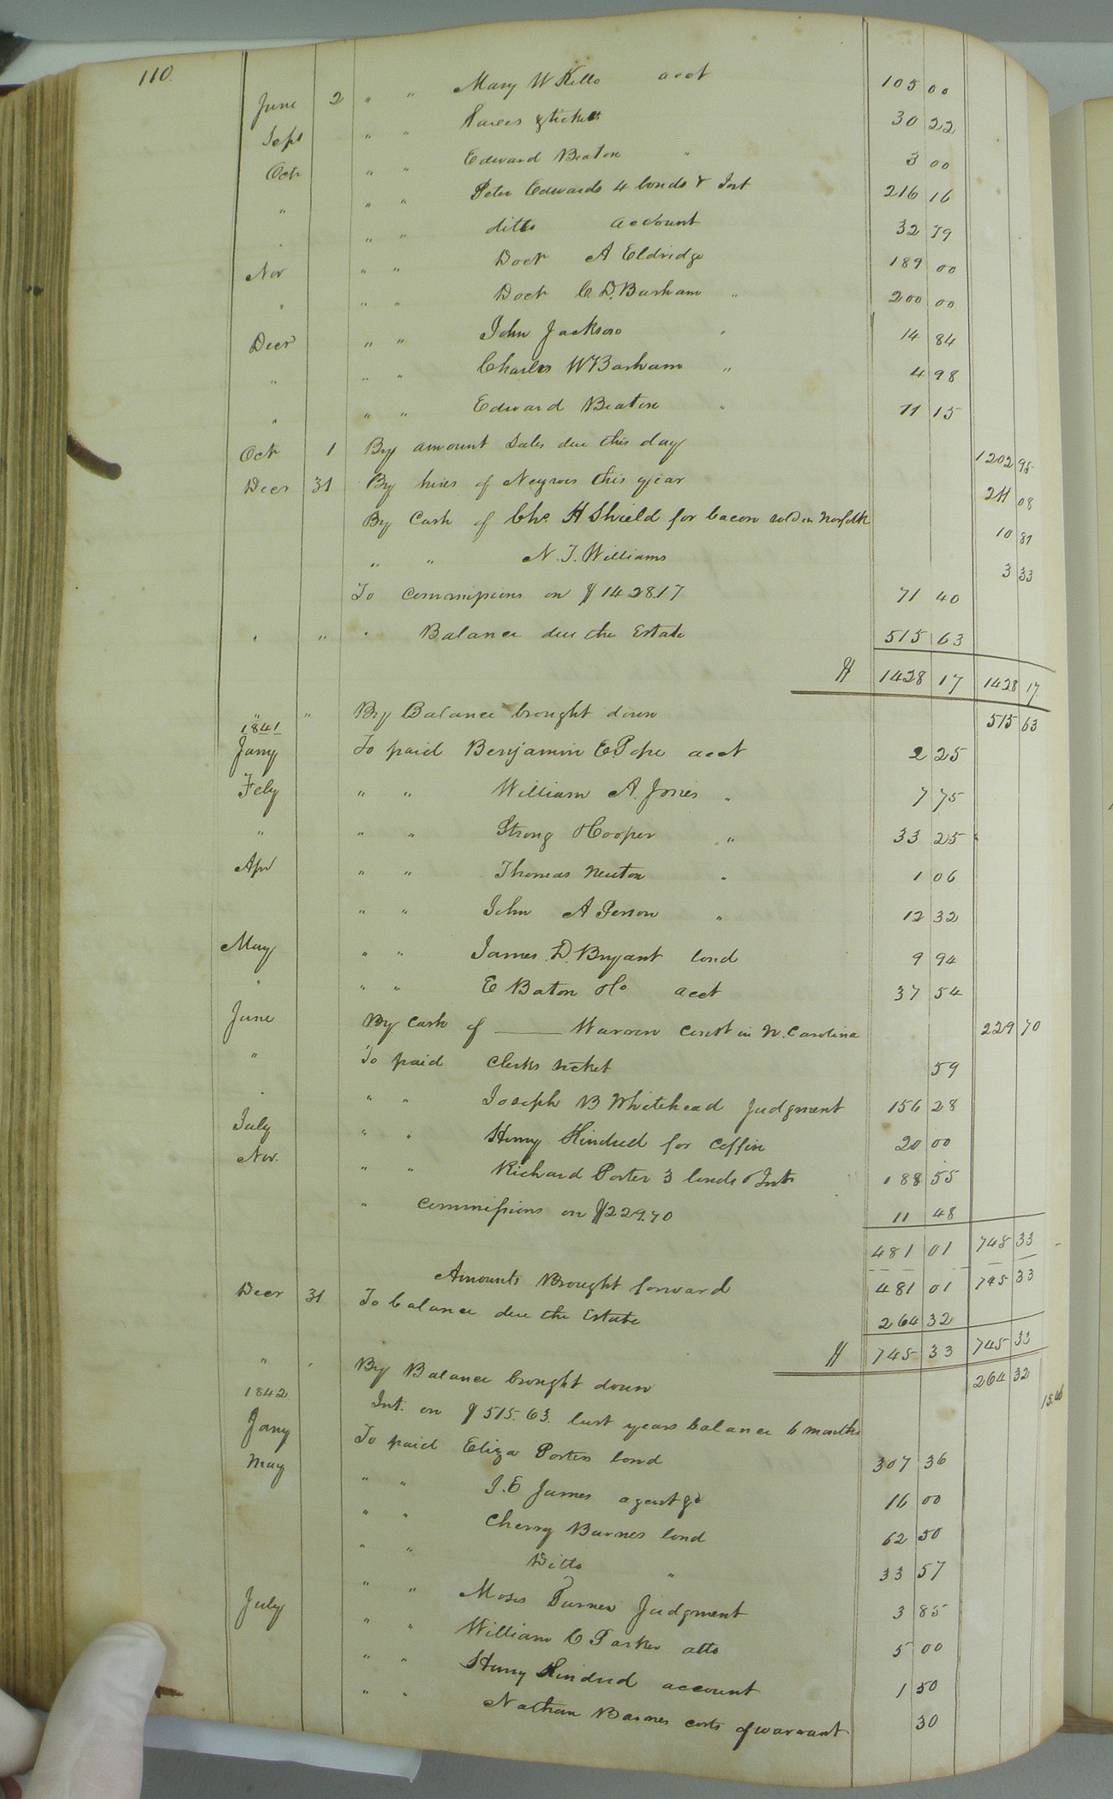 110
June 2 " " Mary W Kello acct 105 00
Sept " " Taxes & tickets 30 22
Oct " " Edward Beaton " 3 00
" " " Peter Edwards 4 bonds & Int 216 16
" " " ditto account 32 79
Nov " " Doct A Eldridge 189 00
" " " Doct C. D. Barham " 200 00
Decr " " John Jackson " 14 84
" " " Charles W Barham " 4 98
" " " Edward Beaton " 11 15
Oct 1 By amount Sales due this day 1202 95
Decr 31 By hires of Negroes this year 211 08
By Cash of Chs. H Shield for bacon sold in Norfolk 10 81
" " N. T. Williams 3 33
To commissions on $1428.17 71 40
" " " Balance due the Estate 515 63
$ 1428 17 1428 17
" " By Balance brought down 515 63
1841
Jany To paid Benjamin E. Pope acct 2 25
Feby " " William A. Jones " 7 75
" " " Strong Hooper " 33 25
Apl " " Thomas Newton " 1 06
" " John A Person " 12 32
May " " James D. Bryant bond 9 94
" " " E Baton Ho acct 37 54
June By Cash of —— Warren Court in N. Carolina 229 70
" To paid Clerks ticket 59
" " " Joseph B Whitehead Judgment 156 28
July " " Henry Kindred for Coffin 20 00
Nov. " " Richard Porter 3 bonds & Int 188 55
" commissions on $229.70 11 48
481 01 745 33
Amounts Brought forward 481 01 745 33
Decr 31 To balance due the Estate 264 32
$ 745 33 745 33
" " By Balance brought down 264 32
1842 Int. on $515.63 last years balance 6 months 15.46
Jany To paid Eliza Porters bond 307 36
May " " J. E James agent &c 16 00
" " Cherry Barnes bond 62 50
" " Ditto " 33 57
" " Moses Turner Judgment 3 85
July " " William C Parker atto 5 00
" " Henry Kindred account 1 50
" " Nathan Barnes costs of warrant 30